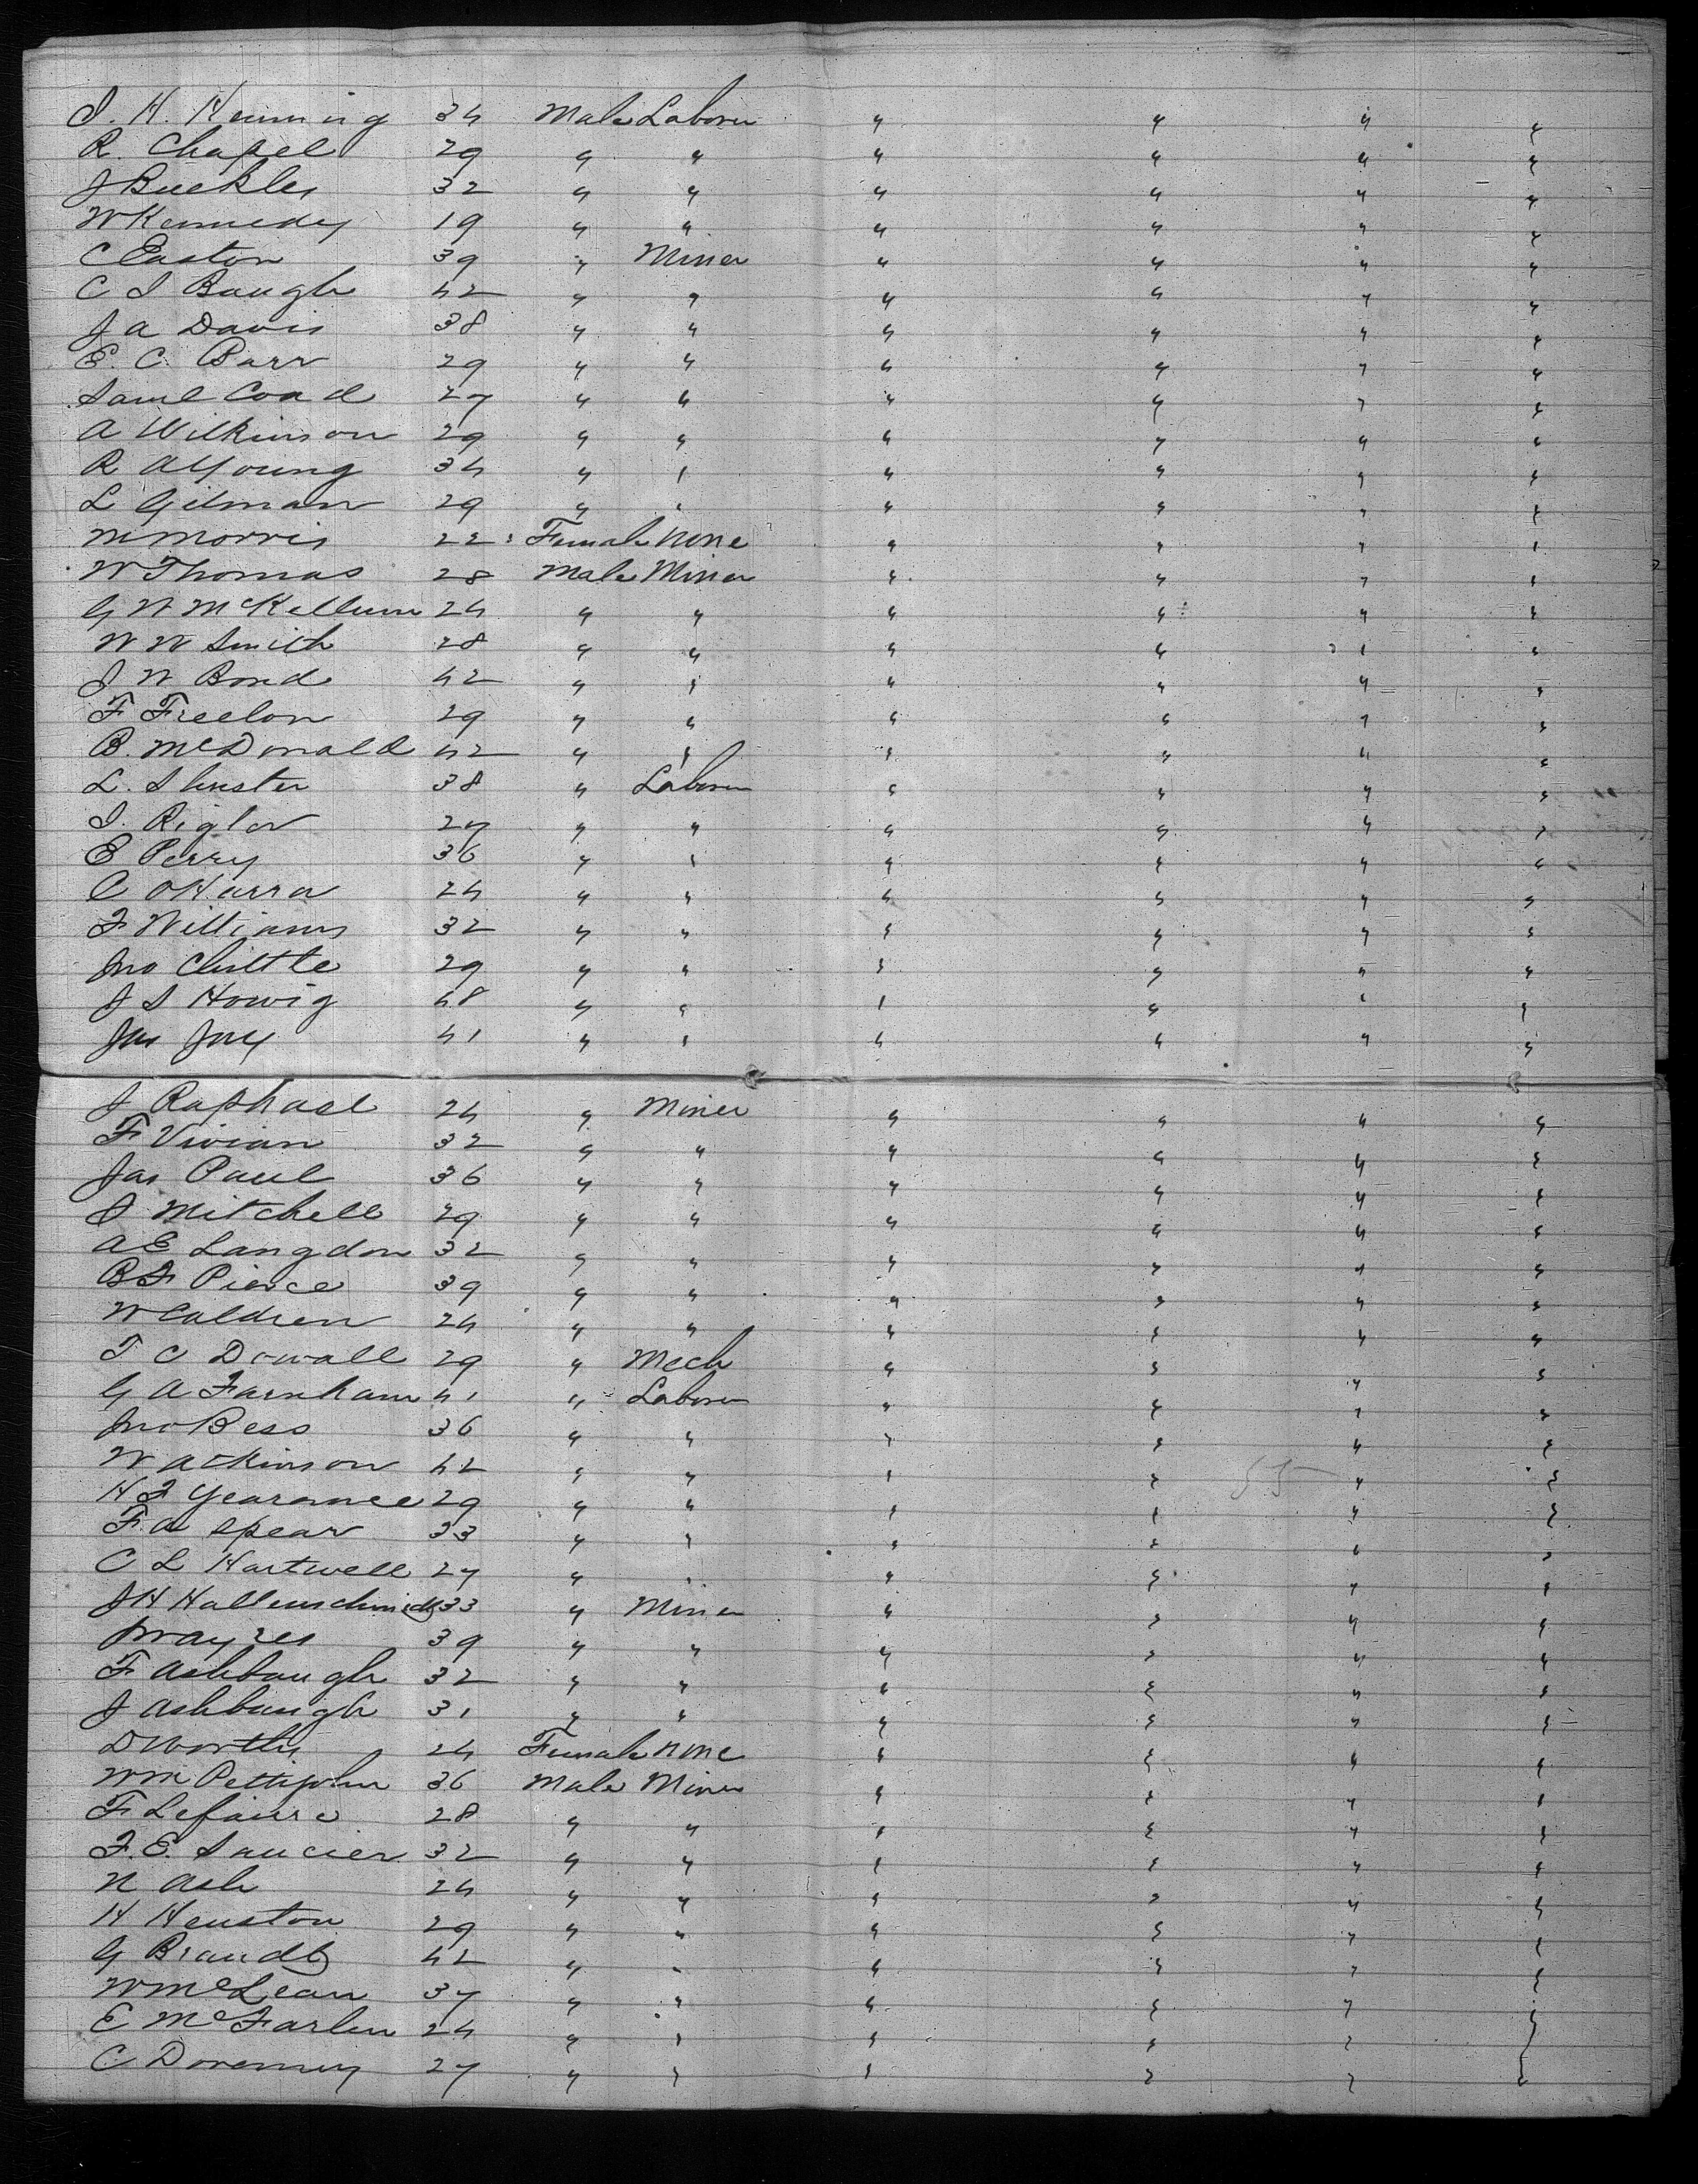 J. H. Henning 34 Male Laborer " " " "
R. Chapel 29 " " " " " "
J Buckley 32 " " " " " "
W Kennedy 19 " " " " " "
C Easton 39 " Miner " " " "
C S Baugh 42 " " " " " "
J A Davis 38 " " " " " "
E. C. Barr 29 " " " " " "
Saml Coad 27 " " " " " "
A Wilkinson 29 " " " " " "
R A Young 34 " " " " " "
L Gilman 29 " " " " " "
M Morris 22 Female None " " " "
W Thomas 28 Male Miner " " " "
G W McKellum 24 " " " " " "
W W Smith 28 " " " " " "
J W Bond 42 " " " " " "
F Freelon 29 " " " " " "
B. McDonald 42 " " " " " "
L. Shuster 38 " Laborer " " " "
S. Riglor 27 " " " " " "
E Perry 36 " " " " " "
C OHarra 24 " " " " " "
F Williams 32 " " " " " "
Jno 29 " " " " " "
J S Howig 48 " " " " " "
Jas Joy 41 " " " " " "
J Raphael 24 " Miner " " " "
F Vivian 32 " " " " " "
Jas Paul 36 " " " " " "
S Mitchell 29 " " " " " "
A E Langdon 32 " " " " " "
B F Pierce 39 " " " " " "
W Caldren 24 " " " " " "
T C Dowall 29 " Mech " " " "
G A Farnham 41 " Laborer " " " "
Jno Bess 36 " " " " " "
W Atkinson 42 " " " " 55 " "
H F Yearance 29 " " " " " "
F. A Spear 33 " " " " " "
C L Hartwell 27 " " " " " "
J H Hallenschmidt 33 " Miner " " " "
39 " " " " " "
F Ashbaugh 32 " " " " " "
J Ashbaugh 31 " " " " " "
D Worthy 24 Female None " " " "
Wm Pettijohn 36 Male Miner " " " "
F Lefaure 28 " " " " " "
F. E. Saucier 32 " " " " " "
N Ash 24 " " " " " "
H Heuston 29 " " " " " "
G Brandt 42 " " " " " "
W McLean 37 " " " " " "
E McFarlen 24 " " " " " "
C Doremey 27 " " " " " "